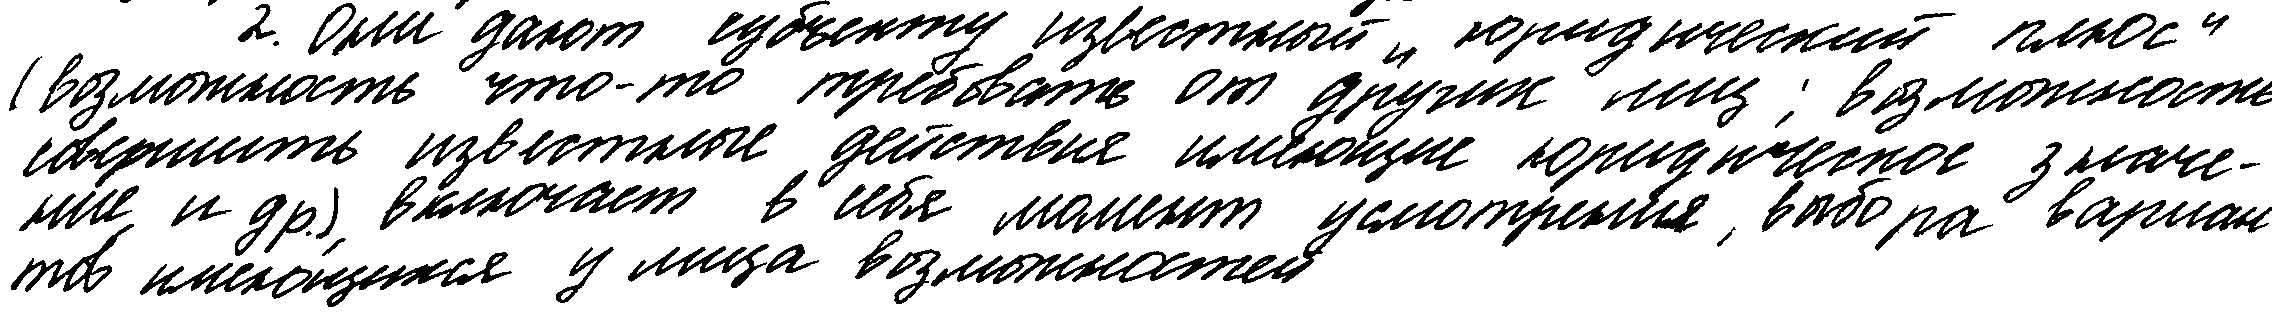 2. Они дают субъекту известный „юридический плюс"
(возможность что-то требовать от других лиц; возможность
совершить известные действия имеющие юридическое значе-
ние, и др.), включает в себя момент усмотрения, выбора вариан
тов, имеющихся у лица возможностей